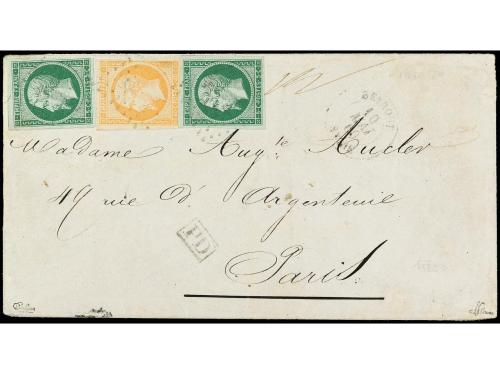 EMPIRE FRANC. EMPIRE FRANC. EMPIRE FRANC.
BEYROUT
10
MAI
Madame Aug.te Aucler
49 rue d'Argenteuil
PD
Paris